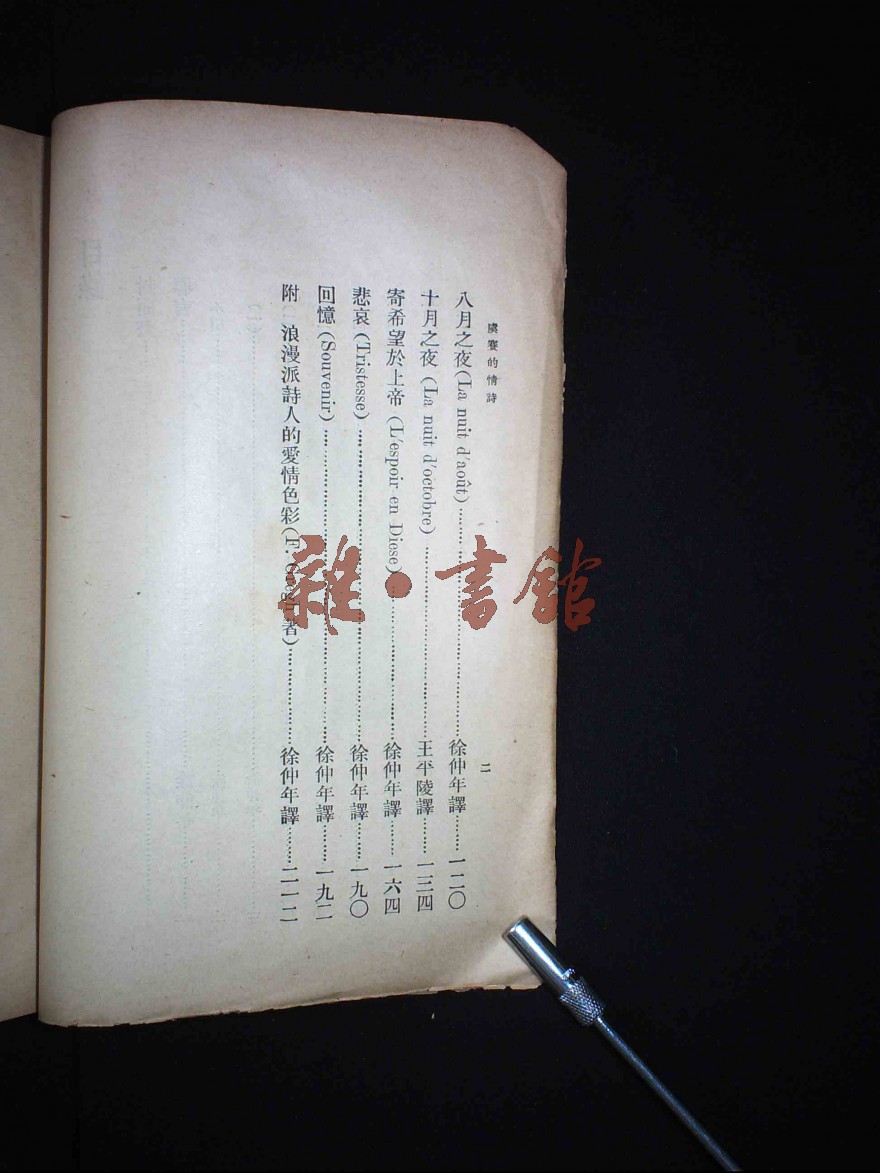 虞賽的情詩
二
八月之夜(La nuit d'août)……徐仲年譯……一二〇
十月之夜(La nuit d'octobre)……王平陵譯……一三四
寄希望於上帝(L'espoir en Diese)……徐仲年譯……一六四
悲哀(Tristesse)……徐仲年譯……一九〇
回憶(Souvenir)……徐仲年譯……一九二
附:浪漫派詩人的愛情色彩(F. 著)……徐仲年譯……二一二
雜·書館